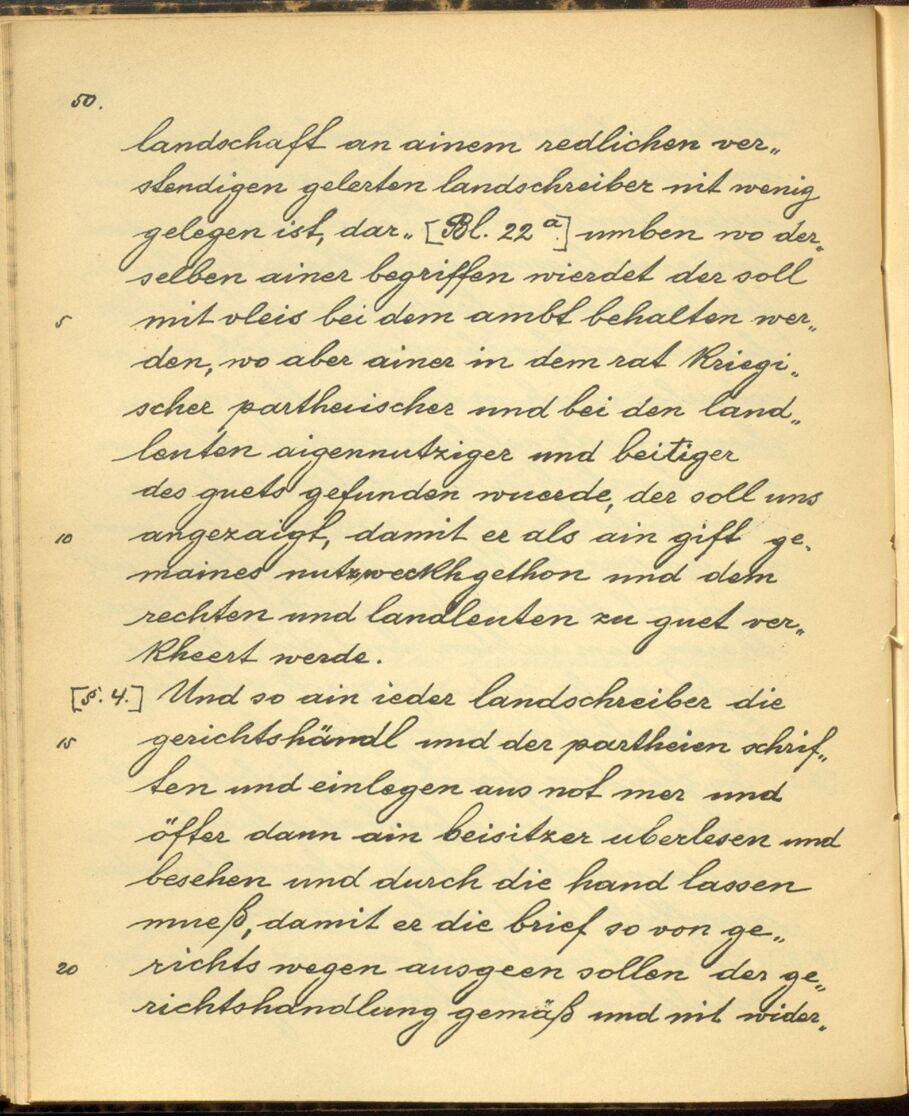 50.
landschaft an ainem redlichen ver„
stendigen gelerten landschreiber nit wenig
gelegen ist, dar„ [Bl. 22 a.] umben wo der„
selben ainer begriffen wierdet der soll
5 mit vleis bei dem ambt behalten wer„
den, wo aber ainer in dem rat kriegi„
scher partheiischer und bei den land„
leuten aigennutziger und beitiger
des guets gefunden wuerde, der soll uns
10 angezaigt, damit er als ain gift ge„
maines nutz, weckhgethon und dem
rechten und landleuten zu guet ver„
kheert werde.
[§. 4.] Und so ain ieder landschreiber die
15 gerichtshändl und der partheien schrif„
ten und einlegen aus not mer und
öfter dann ain beisitzer uberlesen und
besehen und durch die hand lassen
mueß, damit er die brief so von ge„
20 richts wegen ausgeen sollen der ge„
richtshandlung gemäß und nit wider„